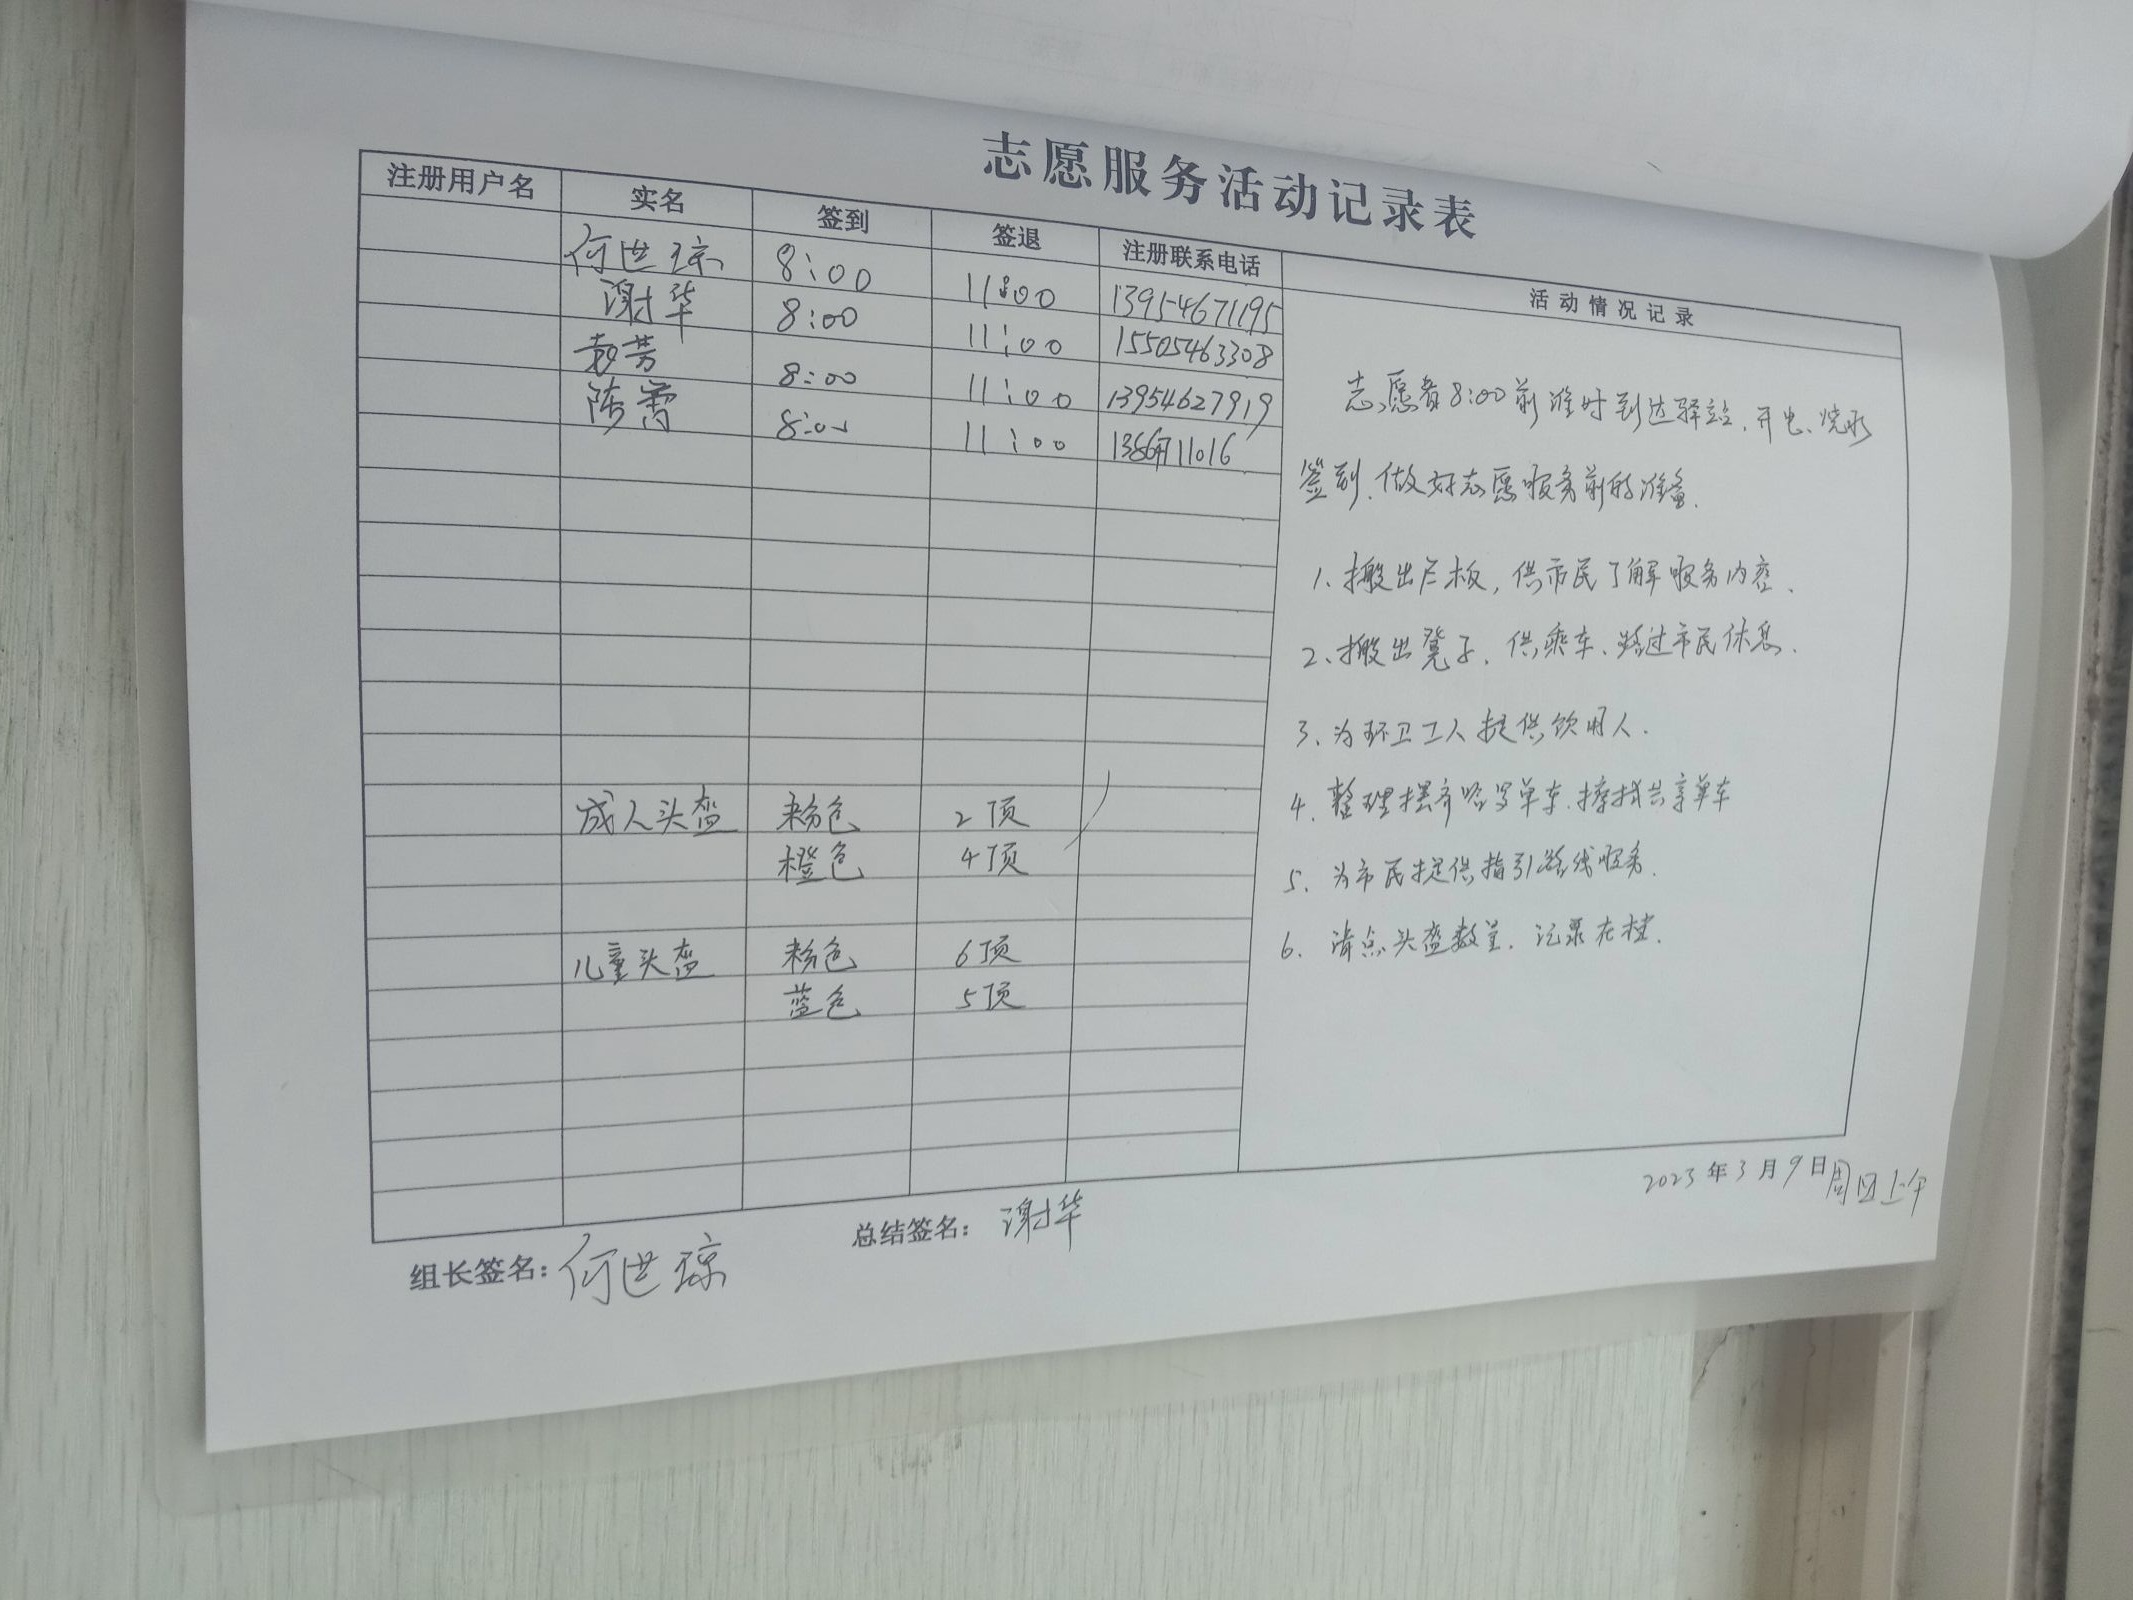 志愿服务活动记录表
注册用户名 实名 签到 签退 注册联系电话 活动情况记录
何世琼 8:00 11:00 13954671195
谢华 8:00 11:00 15505463308
袁芳 8:00 11:00 13954627919
陈霄 8:00 11:00
志愿者8:00前准时到达驿站、开电、烧水
签到、做好志愿服务前的准备.
1、搬出展板，供市民了解服务内容、
2、搬出凳子、供乘车、路过市民休息、
3、为环卫工人提供饮用人.
4、整理摆齐 单车、擦拭共享单车
5、为市民提供指引路线服务.
6、清点头盔数量、记录在档.
成人头盔 粉色 2顶
橙色 4顶
儿童头盔 粉色 6顶
蓝色 5顶
2023年3月9日周四上午
组长签名：何世琼 总结签名：谢华